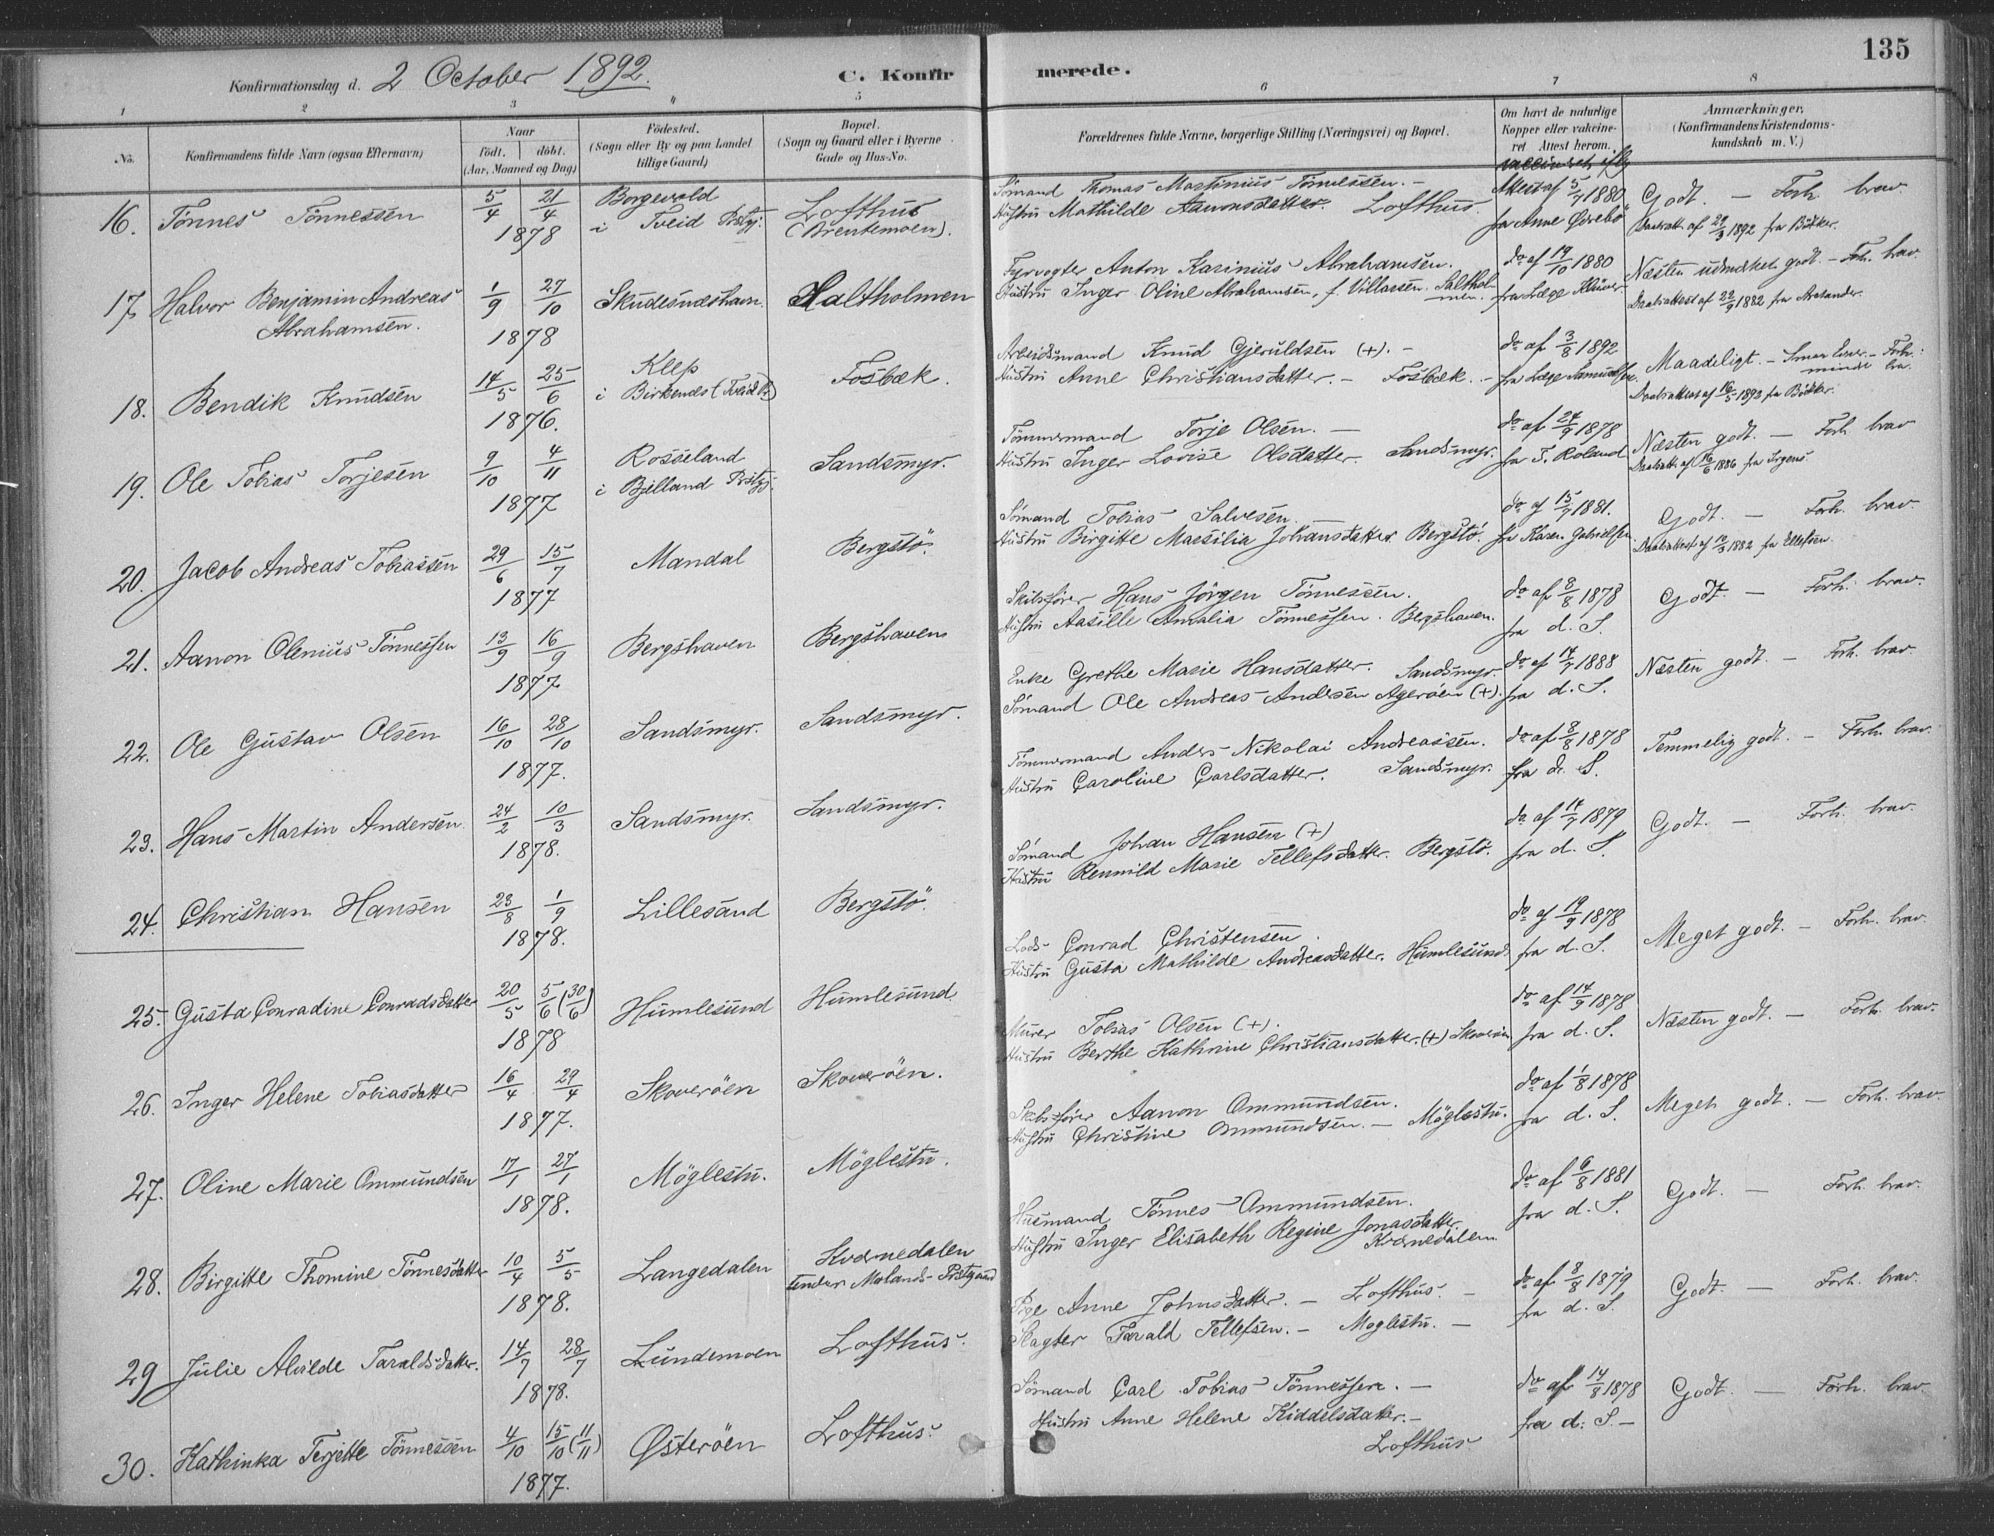 135
Konfirmationsdag d. 2 October 1892.
C. Konfirmerede.
1 2 3 4 5 6 7 8
No. Konfirmandens fulde Navn (ogsaa Efternavn) Naar født. døbt. (Aar, Maaned og Dag)
Fødested. (Sogn eller By og paa Landet tillige Gaard)
Bopæl. (Sogn og Gaard eller i Byerne Gade og Hus-No.
Forældrenes fulde Navne, borgerlige Stilling (Næringsvei) og Bopæl.
Om havt de naturlige Kopper eller vakcineret Attest herom.
Anmærkninger. (Konfirmandens Kristendomskundskab m. V.)
16. Tönnes Tönnessen 5/4 21/4 1878 Borgevold i Tveid Præstgj. Lofthus (Brentemoen).
Sömand Thomas Martinius Tönnessen. –
Hustru Mathilde Aanonsdatter. Lofthus.
vaccineret iflg Attest af 5/7 1880 fra Anne Øvrebö
Godt. – Forh. brav.
Daabsatt. af 29/3 1892 fra Bödker.
17. Halvor Benjamin Andreas Abrahamsen. 1/9 27/10 1878 Skudesnæshavn Saltholmen
Fyrvogter Anton Karinius Abrahamsen.
Hustru Inger Oline Abrahamsen, f. Villarsen. Saltholmen.
do af 19/10 1880 fra Læge Klüver
Næsten udmærket godt – Forh. brav.
Daabsattest af 22/9 1882 fra Arctander.
18. Bendik Knudsen 14/5 25/6 1876. Klep i Birkenes (Tveid Pr) Fosbæk.
Arbeidsmand Knud Gjeruldsen (+). –
Hustru Anne Christiansdatter. – Fosbæk. –
do af 3/8 1892 fra Læge Samuelsen
Maadeligt. – Forh. bra.
Daabsattest af 16/5 1893 fra Bödker.
19. Ole Tobias Torjesen 9/10 4/11 1877 Rosseland i Bjelland Prstgj. Sandsmyr.
Tömmermand Torje Olsen. –
Hustru Inger Lovise Olsdatter. Sandsmyr.
do af 24/9 1878 fra T. Roland
Næsten godt. – Forh. brav
Daabsatt. af 16/6 1886 fra Irgens.
20. Jacob Andreas Tobiassen 29/6 15/7 1877 Mandal Bergstö.
Sömand Tobias Salvesen.
Hustru Birgitte Maesilia Johansdatter Bergstö.
do af 15/7 1881. fra Karen Gabrielsen
Godt. – Forh. brav.
Daabsattest af 10/3 1882 fra Ellefsen.
21. Aanon Olenius Tönnessen 13/9 16/9 1877 Bergshaven Bergshaven
Skibsfører Hans Jörgen Tönnessen.
Hustru Aasille Amalia Tönnessen. Bergshaven.
do af 8/8 1878 fra d. S.
Godt. – Forh. brav.
22. Ole Gustav Olsen 16/10 28/10 1877. Sandsmyr. Sandsmyr.
Enke Grethe Marie Hansdatter. Sandsmyr.
Sömand Ole Andreas Andersen Ageröen (+).
do af 14/7 1888 fra d. S.
Næsten godt. – Forh. brav.
23. Hans Martin Andersen 24/2 10/3 1878. Sandsmyr. Sandsmyr.
Tömmermand Anders Nikolai Andreassen.
Hustru Caroline Carlsdatter. Sandsmyr.
do af 8/8 1878 fra d. S.
Temmelig godt. – Forh. brav.
24. Christian Hansen 23/8 1/9 1878. Lillesand Bergstö.
Sömand Johan Hansen (+)
Hustru Rennild Marie Tellefsdatter. Bergstö.
do af 14/7 1879 fra d. S.
Godt. – Forh. brav.
25. Gusta Conradine Conradsdatter 20/5 5/6 (30/6) 1878 Humlesund Humlesund.
Lods Conrad Christensen.
Hustru Gusta Mathilde Andreasdatter. Humlesund.
do af 19/9 1878 fra d. S.
Meget godt. – Forh. brav.
26. Inger Helene Tobiasdatter 16/4 29/4 1877. Skoveröen Skoveröen.
Murer Tobias Olsen (+).
Hustru Berthe Kathrine Christiansdatter. (+) Skoveröen
do af 14/9 1878 fra d. S.
Næsten godt. – Forh. brav.
27. Oline Marie Ommundsen 17/1 27/1 1878. Möglestu. Möglestu.
Skibsfører Aanon Ommundsen.
Hustru Christine Ommundsen. – Möglestu.
do af 1/8 1878 fra d. S.
Meget godt. – Forh. brav.
28. Birgitte Thomine Tönnesdatter 10/4 5/5 1878. Langedalen Kvernedalen under Molands Prstgaard
Husmand Tönnes Ommundsen.
Hustru Inger Elisabeth Regine Jonasdatter. Kvernedalen
do af 6/8 1881 fra d. S.
Godt. – Forh. brav.
29 Julie Alvilde Taraldsdatter. 14/7 28/7 1878. Lundemoen Lofthus.
Pige Anne Johnsdatter. – Lofthus. –
Slagter Tarald Tellefsen. – Moglestu. –
do af 8/8 1879 fra d. S.
Godt. – Forh. brav.
30. Kathinka Terjette Tönnessen 4/10 15/10 (11/11) 1877. Østeröen Lofthus.
Sömand Carl Tobias Tönnessen. –
Hustru Anne Helene Kiddelsdatter. –
Lofthus
do af 14/8 1878 fra d. S. –
Godt. – Forh. brav.